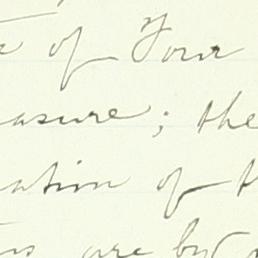 of Your
asure; the
ation of t
are by